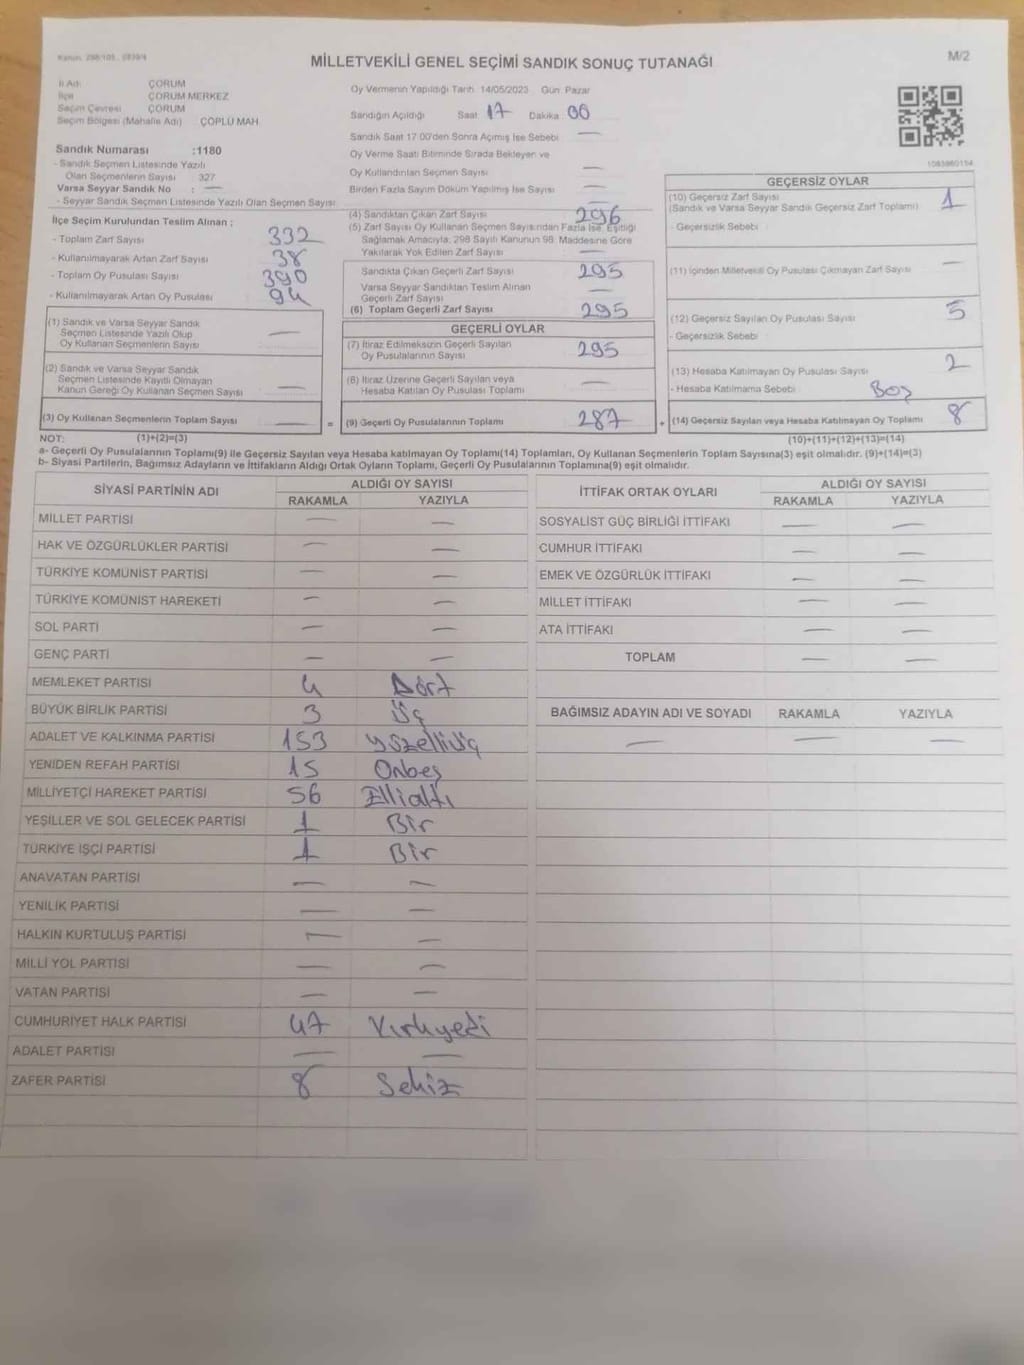 MİLLETVEKİLİ GENEL SEÇİMİ SANDIK SONUÇ TUTANAĞI
M/2
İl Adı ÇORUM
İlçe ÇORUM MERKEZ
Seçim Çevresi ÇORUM
Seçim Bölgesi (Mahalle Adı) ÇÖPLÜ MAH.
Sandık Numarası :1180
- Sandık Seçmen Listesinde Yazılı
Olan Seçmenlerin Sayısı 327
Varsa Seyyar Sandık No : —
- Seyyar Sandık Seçmen Listesinde Yazılı Olan Seçmen Sayısı
Oy Vermenin Yapıldığı Tarih 14/05/2023 Gün: Pazar
Sandığın Açıldığı Saat 17 Dakika 00
Sandık Saat 17:00'den Sonra Açılmış İse Sebebi —
Oy Verme Saati Bitiminde Sırada Bekleyen ve
Oy Kullandırılan Seçmen Sayısı —
Birden Fazla Sayım Döküm Yapılmış İse Sayısı —
1083960154
İlçe Seçim Kurulundan Teslim Alınan :
- Toplam Zarf Sayısı 332
- Kullanılmayarak Artan Zarf Sayısı 38
- Toplam Oy Pusulası Sayısı 390
- Kullanılmayarak Artan Oy Pusulası 94
(1) Sandık ve Varsa Seyyar Sandık
Seçmen Listesinde Yazılı Olup
Oy Kullanan Seçmenlerin Sayısı —
(2) Sandık ve Varsa Seyyar Sandık
Seçmen Listesinde Kayıtlı Olmayan
Kanun Gereği Oy Kullanan Seçmen Sayısı —
(3) Oy Kullanan Seçmenlerin Toplam Sayısı — =
(1)+(2)=(3)
(4) Sandıktan Çıkan Zarf Sayısı 296
(5) Zarf Sayısı Oy Kullanan Seçmen Sayısından Fazla İse, Eşitliği
Sağlamak Amacıyla, 298 Sayılı Kanunun 98. Maddesine Göre
Yakılarak Yok Edilen Zarf Sayısı —
Sandıkta Çıkan Geçerli Zarf Sayısı 295
Varsa Seyyar Sandıktan Teslim Alınan
Geçerli Zarf Sayısı —
(6) Toplam Geçerli Zarf Sayısı 295
GEÇERLİ OYLAR
(7) İtiraz Edilmeksizin Geçerli Sayılan
Oy Pusulalarının Sayısı 295
(8) İtiraz Üzerine Geçerli Sayılan veya
Hesaba Katılan Oy Pusulası Toplamı —
(9) Geçerli Oy Pusulalarının Toplamı 287 +
GEÇERSİZ OYLAR
(10) Geçersiz Zarf Sayısı 1
(Sandık ve Varsa Seyyar Sandık Geçersiz Zarf Toplamı)
- Geçersizlik Sebebi
(11) İçinden Milletvekili Oy Pusulası Çıkmayan Zarf Sayısı —
(12) Geçersiz Sayılan Oy Pusulası Sayısı 5
- Geçersizlik Sebebi
(13) Hesaba Katılmayan Oy Pusulası Sayısı 2
- Hesaba Katılmama Sebebi Boş
(14) Geçersiz Sayılan veya Hesaba Katılmayan Oy Toplamı 8
(10)+(11)+(12)+(13)=(14)
NOT:
a- Geçerli Oy Pusulalarının Toplamı(9) ile Geçersiz Sayılan veya Hesaba katılmayan Oy Toplamı(14) Toplamları, Oy Kullanan Seçmenlerin Toplam Sayısına(3) eşit olmalıdır. (9)+(14)=(3)
b- Siyasi Partilerin, Bağımsız Adayların ve İttifakların Aldığı Ortak Oyların Toplamı, Geçerli Oy Pusulalarının Toplamına(9) eşit olmalıdır.
SİYASİ PARTİNİN ADI ALDIĞI OY SAYISI
RAKAMLA YAZIYLA
MİLLET PARTİSİ — —
HAK VE ÖZGÜRLÜKLER PARTİSİ — —
TÜRKİYE KOMÜNİST PARTİSİ — —
TÜRKİYE KOMÜNİST HAREKETİ — —
SOL PARTİ — —
GENÇ PARTİ — —
MEMLEKET PARTİSİ 4 Dört
BÜYÜK BİRLİK PARTİSİ 3 Üç
ADALET VE KALKINMA PARTİSİ 153 yüzelliüç
YENİDEN REFAH PARTİSİ 15 Onbeş
MİLLİYETÇİ HAREKET PARTİSİ 56 Ellialtı
YEŞİLLER VE SOL GELECEK PARTİSİ 1 Bir
TÜRKİYE İŞÇİ PARTİSİ 1 Bir
ANAVATAN PARTİSİ — —
YENİLİK PARTİSİ — —
HALKIN KURTULUŞ PARTİSİ — —
MİLLİ YOL PARTİSİ — —
VATAN PARTİSİ — —
CUMHURİYET HALK PARTİSİ 47 Kırkyedi
ADALET PARTİSİ — —
ZAFER PARTİSİ 8 Sekiz
İTTİFAK ORTAK OYLARI ALDIĞI OY SAYISI
RAKAMLA YAZIYLA
SOSYALİST GÜÇ BİRLİĞİ İTTİFAKI — —
CUMHUR İTTİFAKI — —
EMEK VE ÖZGÜRLÜK İTTİFAKI — —
MİLLET İTTİFAKI — —
ATA İTTİFAKI — —
TOPLAM — —
BAĞIMSIZ ADAYIN ADI VE SOYADI RAKAMLA YAZIYLA
— — —